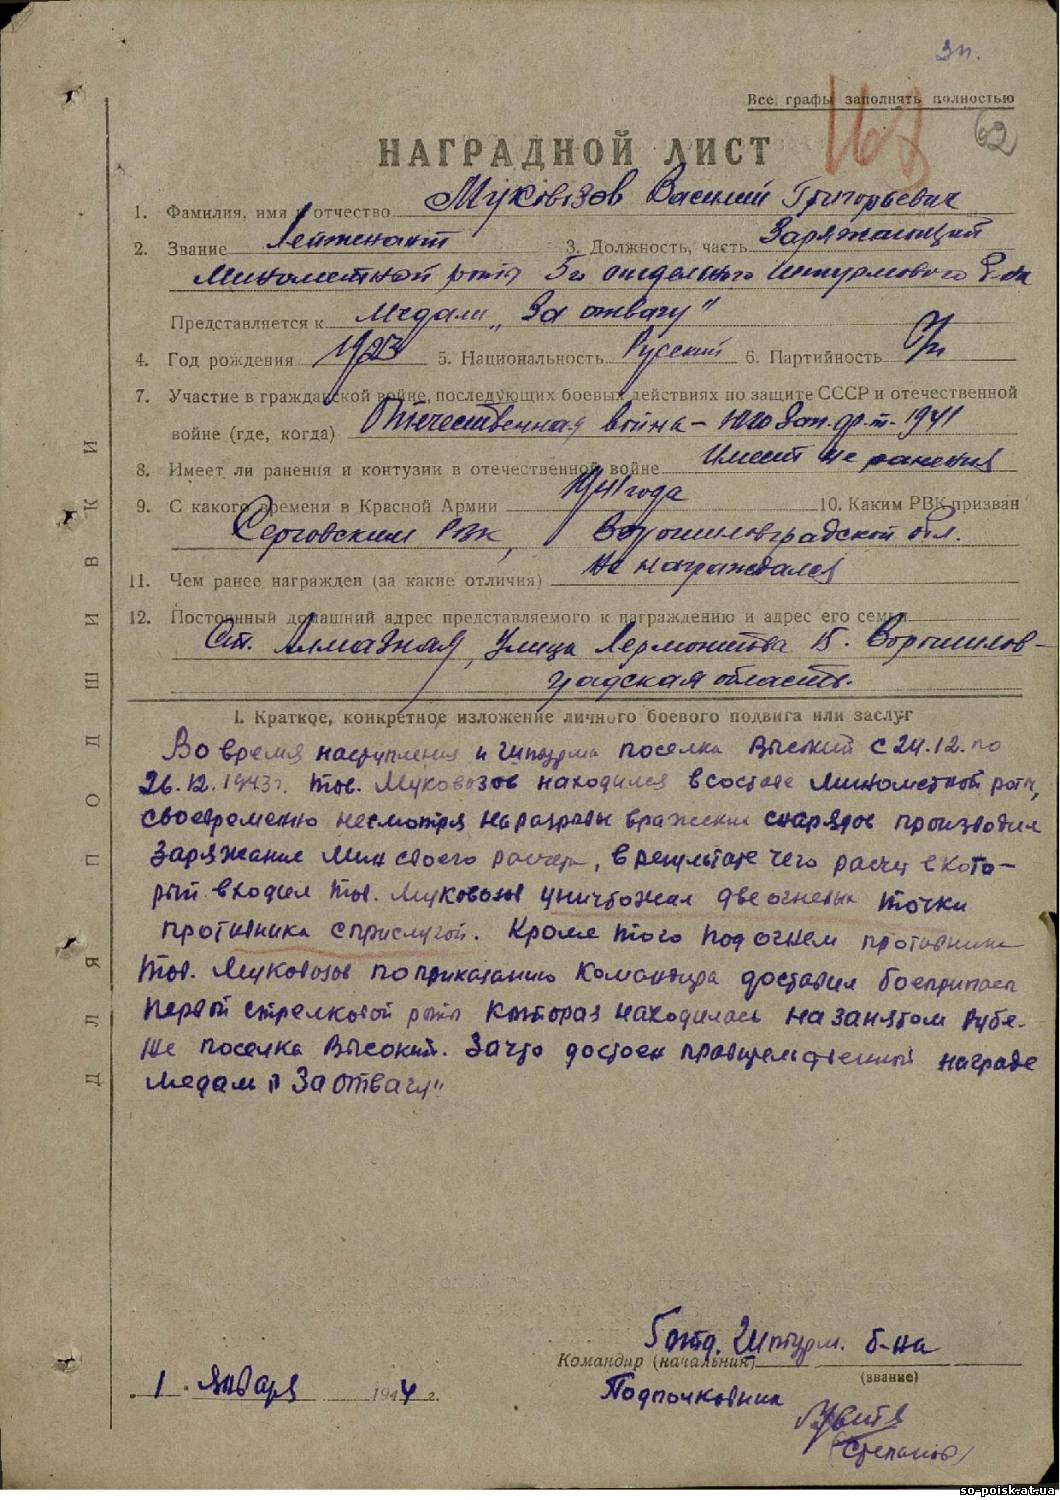 Зп.
Все графы заполнять полностью
62
НАГРАДНОЙ ЛИСТ
1. Фамилия, имя и отчество Муковозов Василий Григорьевич
2. Звание Лейтенант 3. Должность, часть Заряжающий
Минометной роты 5го отдельного штурмового б-на
Представляется к Медали „За отвагу"
4. Год рождения 1923 5. Национальность Русский 6. Партийность
7. Участие в гражданской войне, последующих боевых действиях по защите СССР и отечественной
войне (где, когда) Отечественная война – Юго Зап. фр-т. 1941
8. Имеет ли ранения и контузии в отечественной войне Имеет ранения
9. С какого времени в Красной Армии 1941 года 10. Каким РВК призван
Серговским Рвк, Ворошиловградской обл.
11. Чем ранее награжден (за какие отличия) не награждался
12. Постоянный домашний адрес представляемого к награждению и адрес его семьи
Ст. Алмазная, Улица Лермонтова 15. Ворошилов-
градская область.
I. Краткое, конкретное изложение личного боевого подвига или заслуг
Во время наступления и штурма поселка Высокий с 24.12. по
26.12.1943г. тов. Муковозов находился в составе минометной роты,
своевременно несмотря на разрывы вражеских снарядов производил
заряжание мин своего расчета, в результате чего расчет в кото-
рый входил тов. Муковозов уничтожил две огневых точки
противника с прислугой. Кроме того под огнем противника
тов. Муковозов по приказанию командира доставил боеприпасы
первой стрелковой роты которая находилась на занятом рубе-
же поселка Высокий. За что достоен правительственной награде
медали „За отвагу"
5 отд. штурм. б-на
Командир (начальник)
(звание)
1. Января 1944 г.
Подполковник
(Степанов)
ДЛЯ ПОДШИВКИ
so-poisk.at.ua